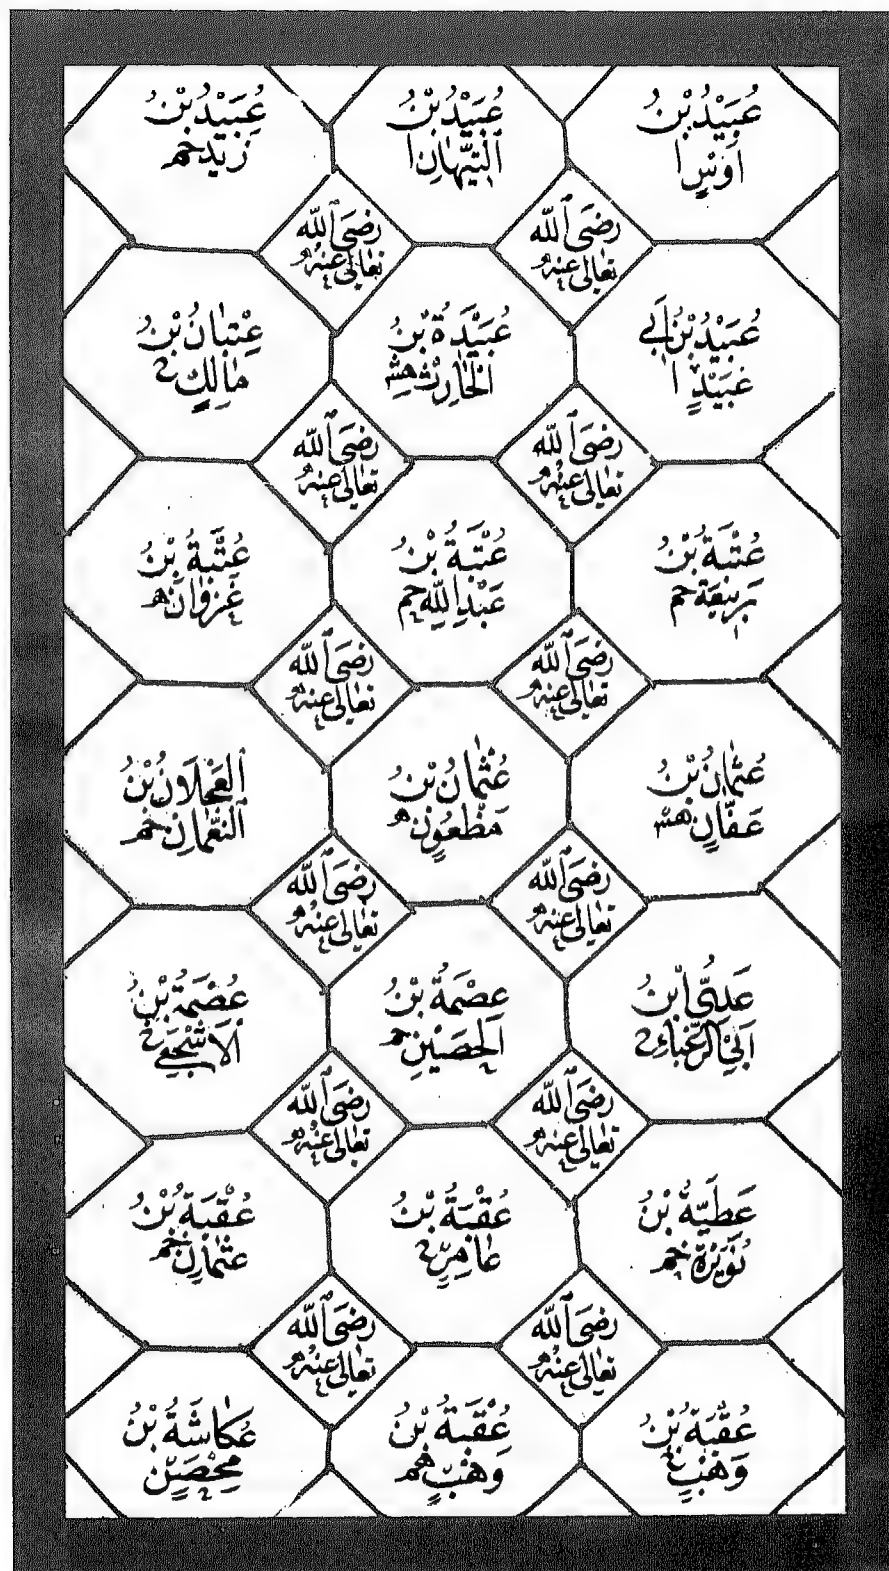 عُبَيْدُ بْنُ
اَوْسٍ ا
عُبَيْدُ بْنُ
التَّيِّهَانِ ا
عُبَيْدُ بْنُ
زَيْدٍ خم
رَضِيَ اللّٰه
تَعَالٰى عَنْهُ
رَضِيَ اللّٰه
تَعَالٰى عَنْهُ
عُبَيْدُ بْنُ اَبِي
عُبَيْدٍ ا
عُبَيْدَةُ بْنُ
الْحَارِثِ هش
عِتْبَانُ بْنُ
مَالِكٍ خ
رَضِيَ اللّٰه
تَعَالٰى عَنْهُ
رَضِيَ اللّٰه
تَعَالٰى عَنْهُ
عُتْبَةُ بْنُ
رَبِيعَةَ خم
عُتْبَةُ بْنُ
عَبْدِ اللّٰهِ خم
عُتْبَةُ بْنُ
غَزْوَانَ ه
رَضِيَ اللّٰه
تَعَالٰى عَنْهُ
رَضِيَ اللّٰه
تَعَالٰى عَنْهُ
عُثْمَانُ بْنُ
عَفَّانَ هش
عُثْمَانُ بْنُ
مَظْعُونٍ ه
الْعَجْلَانُ بْنُ
النُّعْمَانِ خم
رَضِيَ اللّٰه
تَعَالٰى عَنْهُ
رَضِيَ اللّٰه
تَعَالٰى عَنْهُ
عَدِيُّ ابْنُ
اَبِي الزَّغْبَاءِ خ
عِصْمَةُ بْنُ
الْحُصَيْنِ خم
عُصَمَةُ بْنُ
الْاَشْجَعِي خ
رَضِيَ اللّٰه
تَعَالٰى عَنْهُ
رَضِيَ اللّٰه
تَعَالٰى عَنْهُ
عَطِيَّةُ بْنُ
نُوَيْرَةَ خم
عُقْبَةُ بْنُ
عَامِرٍ خ
عُقْبَةُ بْنُ
عُثْمَانَ خم
رَضِيَ اللّٰه
تَعَالٰى عَنْهُ
رَضِيَ اللّٰه
تَعَالٰى عَنْهُ
عُقْبَةُ بْنُ
وَهْبٍ
عُقْبَةُ بْنُ
وَهْبٍ هم
عُكَاشَةُ بْنُ
مِحْصَنٍ